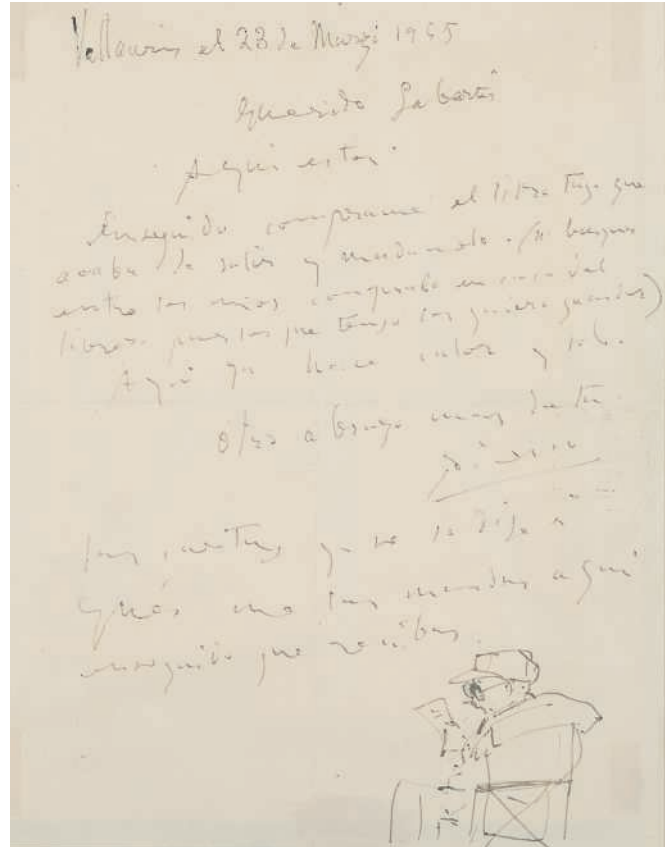 Vallauris el 23 de Marzo 1965
Querido Sabartés
Aquí estoy.
Enseguida comprame el libro tuyo que
acaba de salir y mandamelo. (No busques
entre los mios compralo en casa del
librero pues los que tengo los quiero guardar)
Aquí ya hace calor y sol.
Otro abrazo mas de tu
Picasso
las cartas ya te lo dije a
que me las mandes aqui
enseguida que recibas.